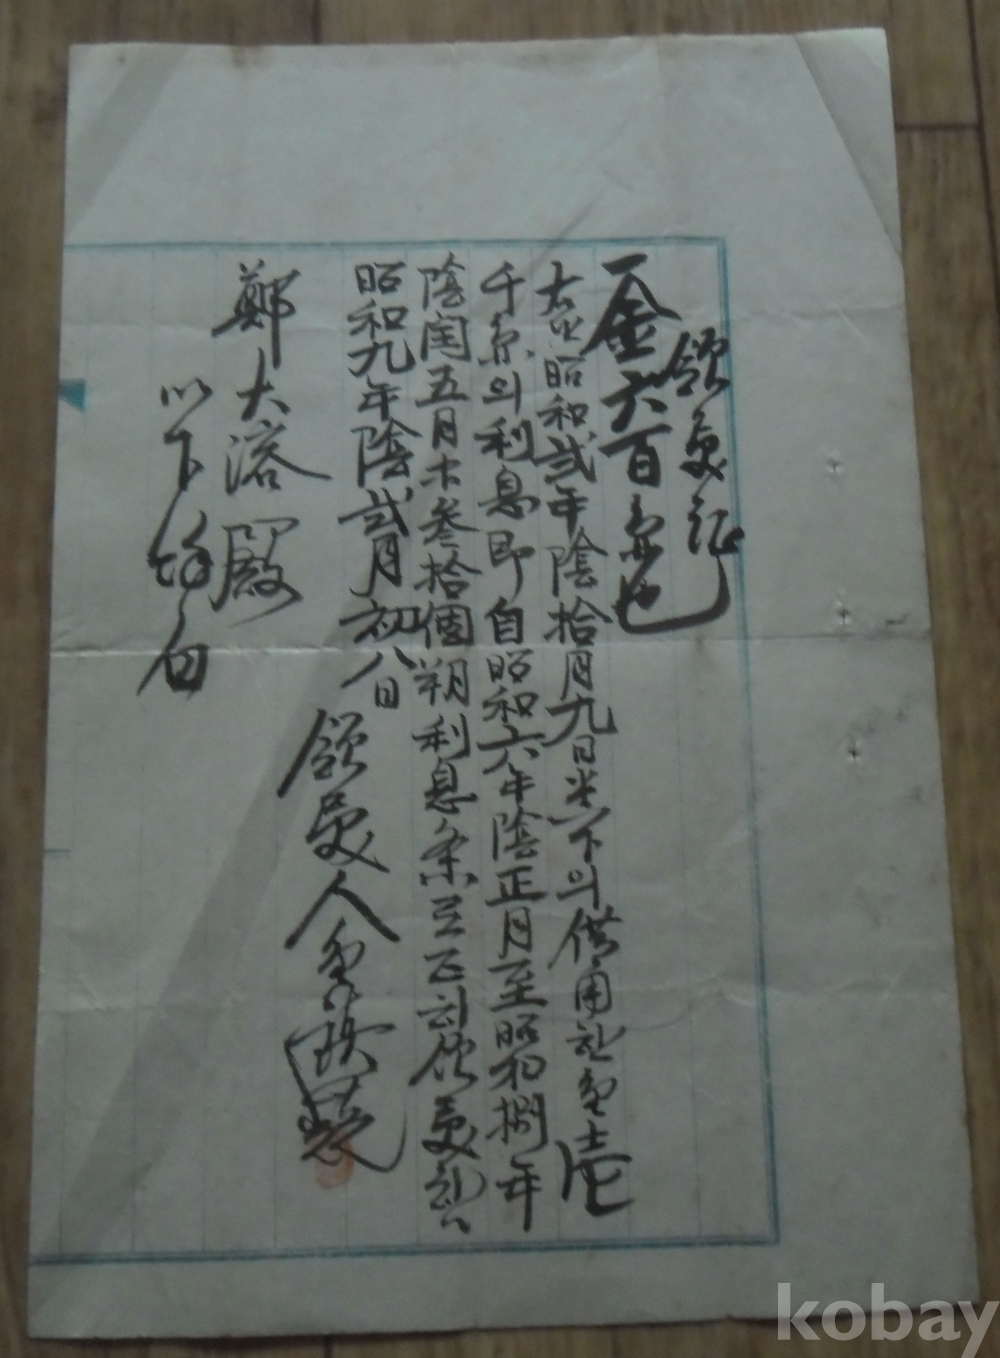 領受証
一金六百円也
右と昭和弐年陰拾月九日 下의借用한金壱
千円의利息即自昭和六年陰正月至昭和捌年
陰閏五月末参拾個朔利息条로正히領受함
昭和九年陰弐月初八日
領受人金
鄭大溶殿
以下 白
kobay